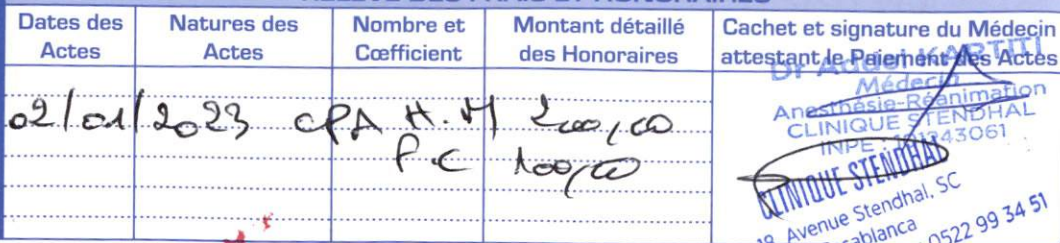 RELEVE DES FRAIS ET HONORAIRES
Dates des Actes
Natures des Actes
Nombre et Cœfficient
Montant détaillé des Honoraires
Cachet et signature du Médecin attestant le Paiement des Actes
02/01/2023 CPA H.M 200,00
PC 100,00
Dr KARTITI
Médecin
Anesthésie-Réanimation
CLINIQUE STENDHAL
INPE 43061
CLINIQUE STENDHAL
Avenue Stendhal, SC
0522 99 34 51